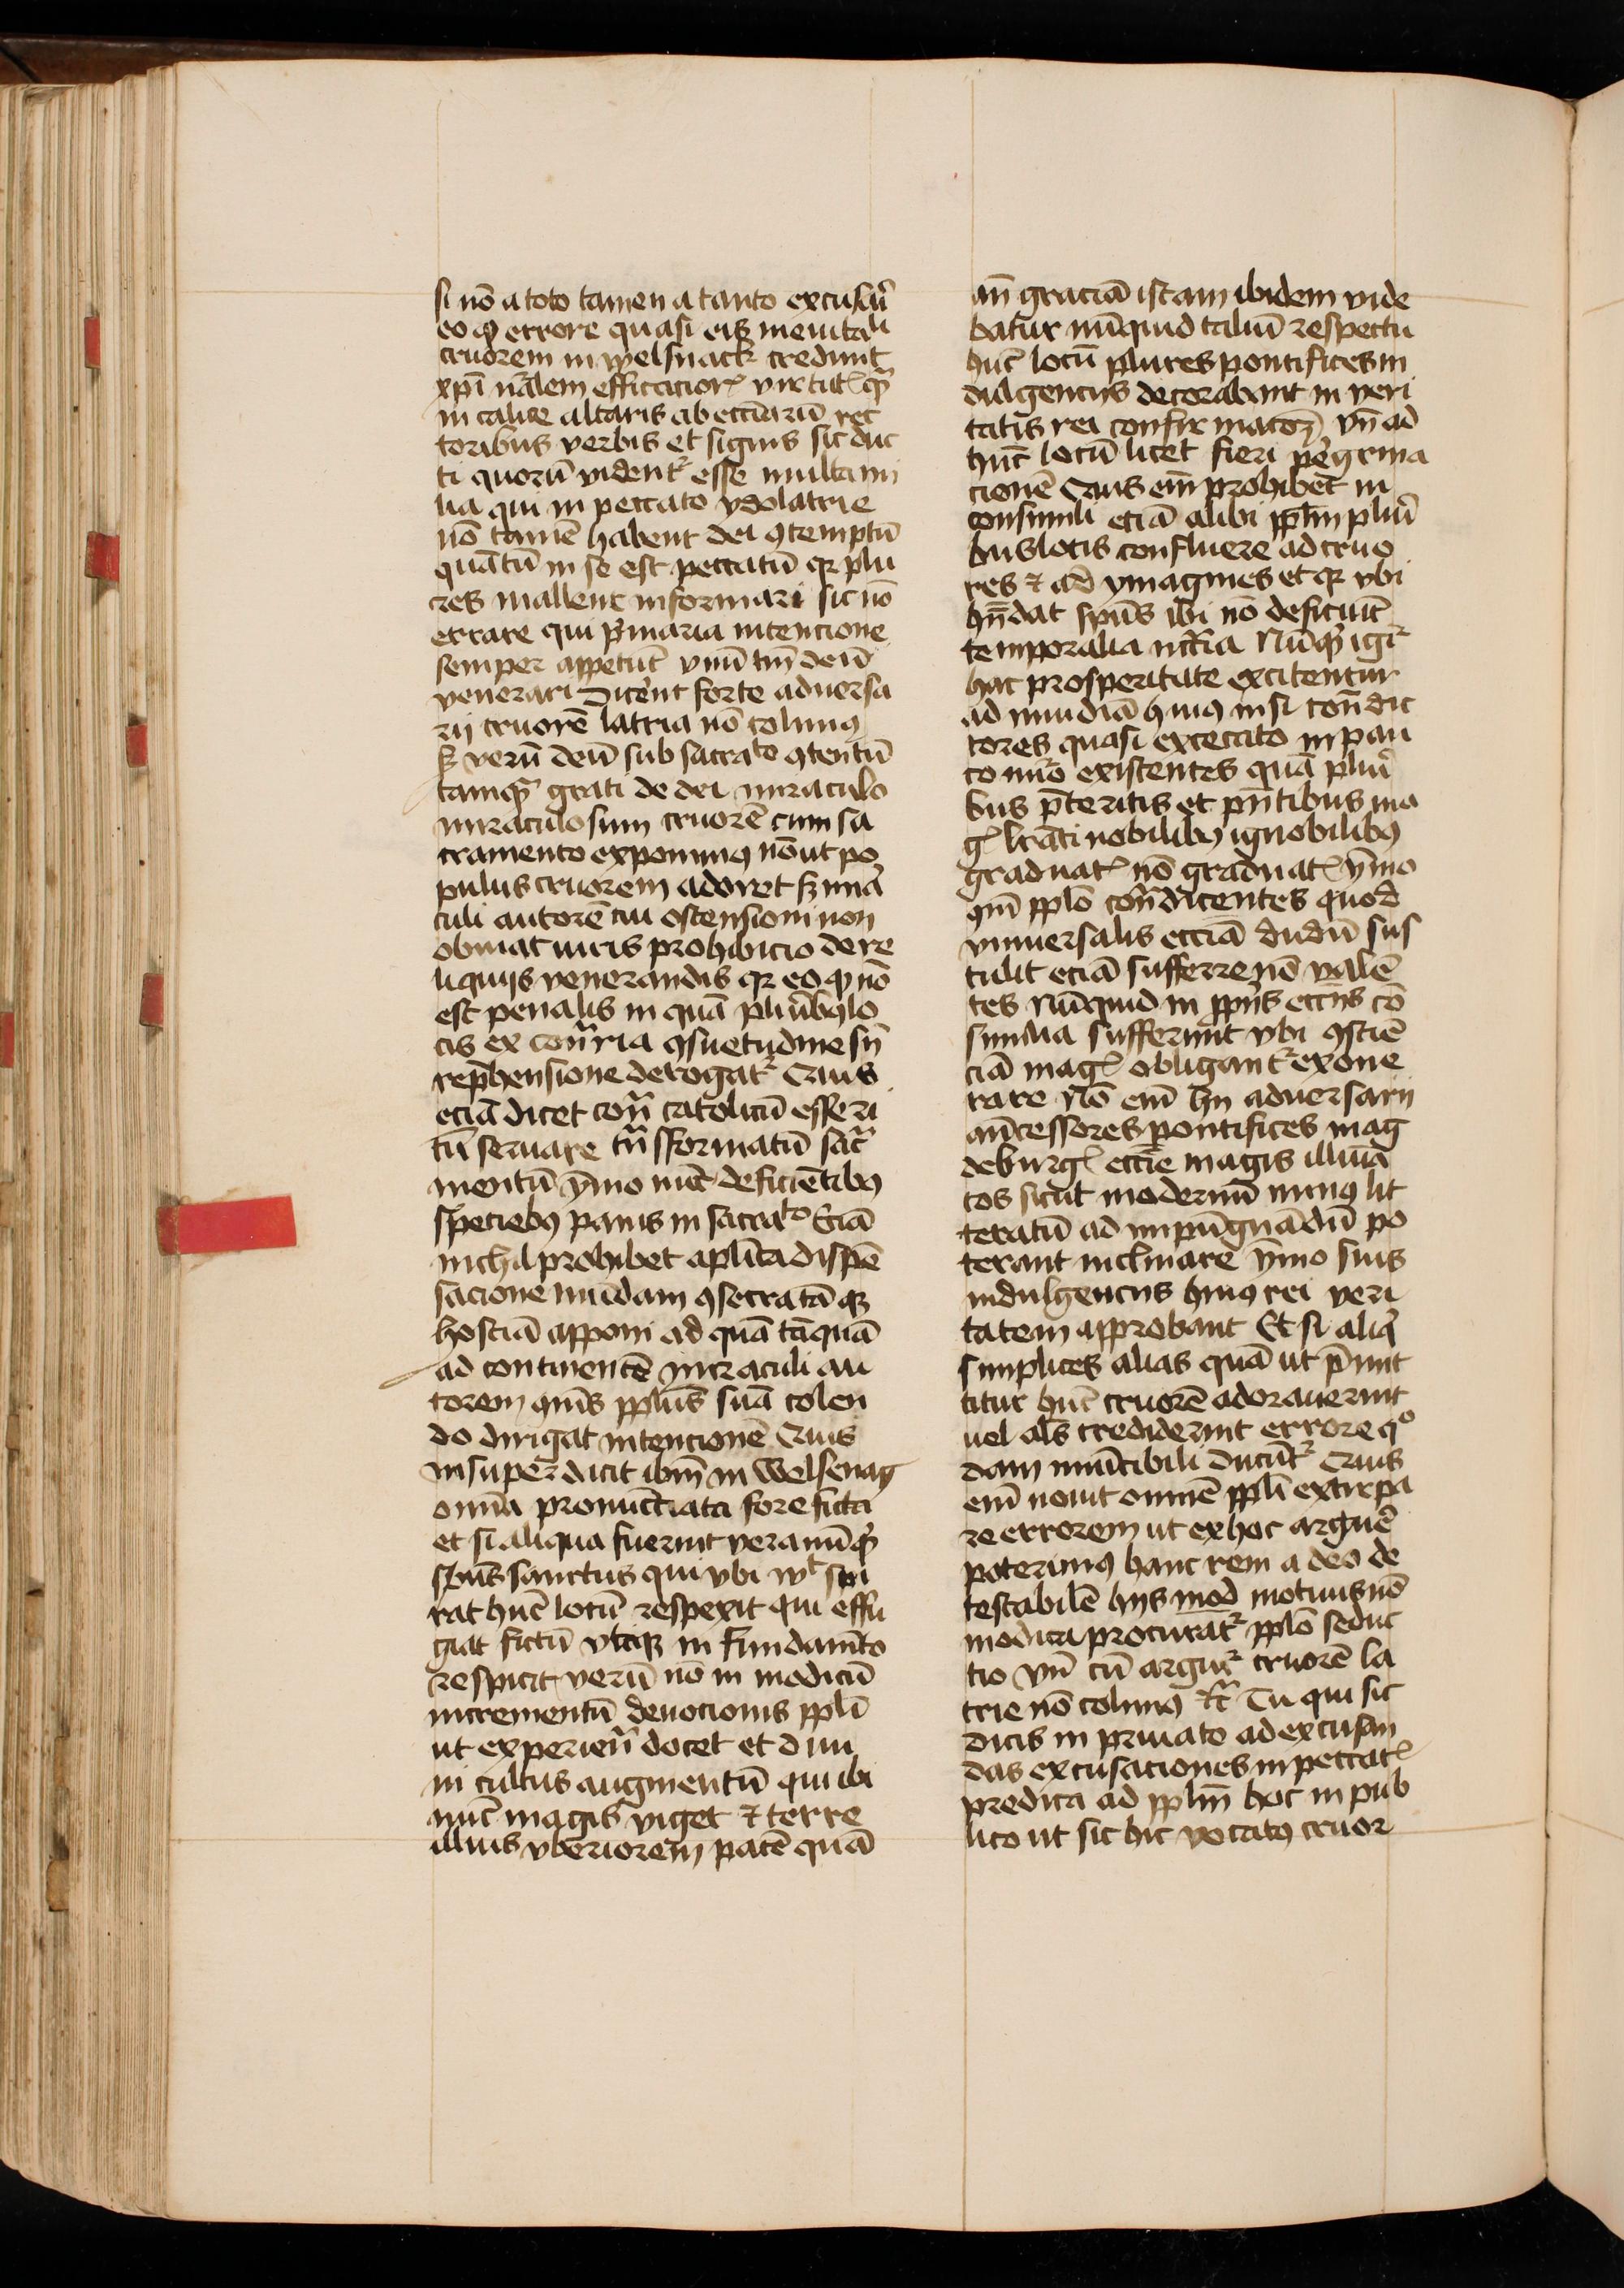 si nō a toto tamen a tanto excusat᷑
eo qͩ errore quasi eis ineuitali
cruorem in welsnack credunt
xp̄i nr̄alem efficacior᷑ virtut᷑ qͣ
in calice altaris ab ecciarū rec
toribus verbis et signis sic duc
ti quorū vident᷑ esse multa mi
lia qui in peccato ydolatrie
nō tamē habent dei ꝯtemptū
quātū in se est peccatū qꝛ plu
res mallent informari sic nō
errare qui p̄maria intencione
semper appetūt vnū tm̄ deū
venerari Dicent forte aduersa
rij cruorē latria nō colimꝰ
sꝫ verū deū sub sacra͏ᵗᵒ ꝯtentū
tamqͣ grati de dei miraculo
miraculosum cruorē cum sa
cramento exponimꝰ nō ut po
pulus cruorem adoret sꝫ mira
culi autorē cui ostensioni non
obuiat iuris prohibicio de re
liquijs venerandis qꝛ eo qͩ nō
est penalis in quā plurib9 lo
cis ex cōn̄ria ꝯsuetudine sn̄
rep̄hensione derogat᷑ Quis
eciā dicet cōn̄ catolicū esse ri
tū seruare tn̄sformatū sac̄
mentū ȳmo nūc deficiētibꝰ
speciebꝰ panis in sacra͏ᵗᵒ Eciā
nichil prohibet aplīca dispē
sacione nūdam ꝯsecratā qꝫ
hostiā apponi ad quā tāquā
ad continentē miraculi au
torem qui͂s pplus suā colen
do dirigat intencionē Quis
insuper dicit ibm̄ in welsenag
omīa pronūctiata fore ficta
et si aliqua fuerint vera nūqͥ
sp̄us sanctus qui vbi wlt spi
rat hūc locū respexit qui effu
giat fictū vtiqꝫ in fundamēto
respicit verū nō in modicū
incrementū deuocionis ppli
ut experien͂ docet et diui
ni cultus augmentū qui ibi
nūc magis viget ⁊ terre
illius vberiorem pacē quā
an̄ graciā istam ibidem vide
batur nūquid taliū respectu
hūc locū plures pontifices in
dulgencijs decorabant in veri
tatis rei confirmacoꝫ vn̄ ad
hūc locū licet fieri pegrina
cionē Quis em̄ prohibet in
consimili eciā alibi pplm̄ pluri
bus locis confluere ad cruo
res ⁊ ad ymagines et qꝛ vbi
hn̄dat sp̄us ibi nō deficiūt
temporalia nccīa Nūqͥ igit᷑
hac prosperitate excitentur
ad inuidiā huiꝰ nisi con̄dic
tores quasi excecato in pau
co nūro existentes quā pluri
bus p̄teritis et pn̄tibus ma
g᷑ lrāti nobilibꝰ ignobilibꝰ
graduat᷑ nō graduat᷑ ȳmo
qui͂ pplo con̄dicentes quod
vniuersalis eccīa dudū sus
tulit eciā sufferre nō valē
tes Nūquid in pp̄ijs eccīis cō
similia sufferunt vbi ꝯsciē
ciā mag᷑ obligant᷑ exone
rare Nō em̄ hn̄ aduersarij
an̄cessores pontifices mag
deburg᷑ eccīe magis illiūā
tos sicut modernū minꝰ lit
teratū ad impūgnādū po
terant inclinare ȳmo suis
indulgencijs huiꝰ rei veri
tatem approbant Et si aliqͥ
simplices alias quā ut p̄mit
titur hūc cruorē adorauerint
uel al͂s crediderint errore qͦ
dam inuīcibili ducūt᷑ Quis
em̄ nouit omnē ppli extirpa
re errorem ut ex hoc arguē
poterimꝰ hanc rem a deo de
testabilē hijs mod motiuis nō
modica procurat᷑ pplo seduc
tio vn̄ cū arguit᷑ cruorē la
trie nō colimꝰ ⁊c̄ Tu qui sic
dicis in priuato ad excusan
das excusaciones in peccat᷑
predica ad pplm̄ hoc in pub
lico ut sic hic vocatꝰ cruor